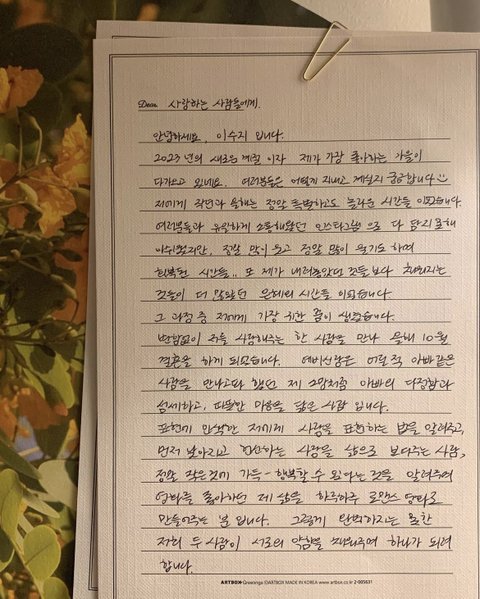 Dear. 사랑하는 사람들에게.
안녕하세요, 이수지 입니다.
2023년의 새로운 계절 이자 제가 가장 좋아하는 가을이
다가오고 있네요. 여러분들은 어떻게 지내고 계실지 궁금합니다
저에게 작년과 올해는 정말 특별하고도 놀라운 시간들 이였습니다
여러분들과 유일하게 소통해왔던 인스타그램으로 다 담지 못해
아쉬웠지만, 정말 많이 웃고 정말 많이 울기도 하며
회복된 시간들.. 또 제가 내려놓았던 것들 보다 채워지는
것들이 더 많았던 은혜의 시간들 이였습니다.
그 과정 중 저에게 가장 귀한 쯤이 생겼습니다.
변함없이 저를 사랑해주는 한 사람을 만나 올해 10월
결혼을 하게 되었습니다. 예비신랑은 어릴 적 아빠같은
사람을 만나고파 했던 제 소망처럼 아빠의 다정함과
섬세하고, 따뜻한 마음을 닮은 사람 입니다.
표현에 인색한 저에게 사랑을 표현하는 법을 알려주고,
먼저 낮아지고 헌신하는 사랑을 삶으로 보여주는 사람,
정말 작은것에 가득 - 행복할 수 있다는 것을 알려주며
영화를 좋아하던 제 삶을 하루하루 로맨스 영화로
만들어주는 분 입니다. 그렇게 완벽하지는 못한
저희 두 사람이 서로의 약함을 채워주며 하나가 되려
합니다.
ARTBOX Greeranga (C)ARTBOX MADE IN KOREA www.artbox.co.kr 2-005631